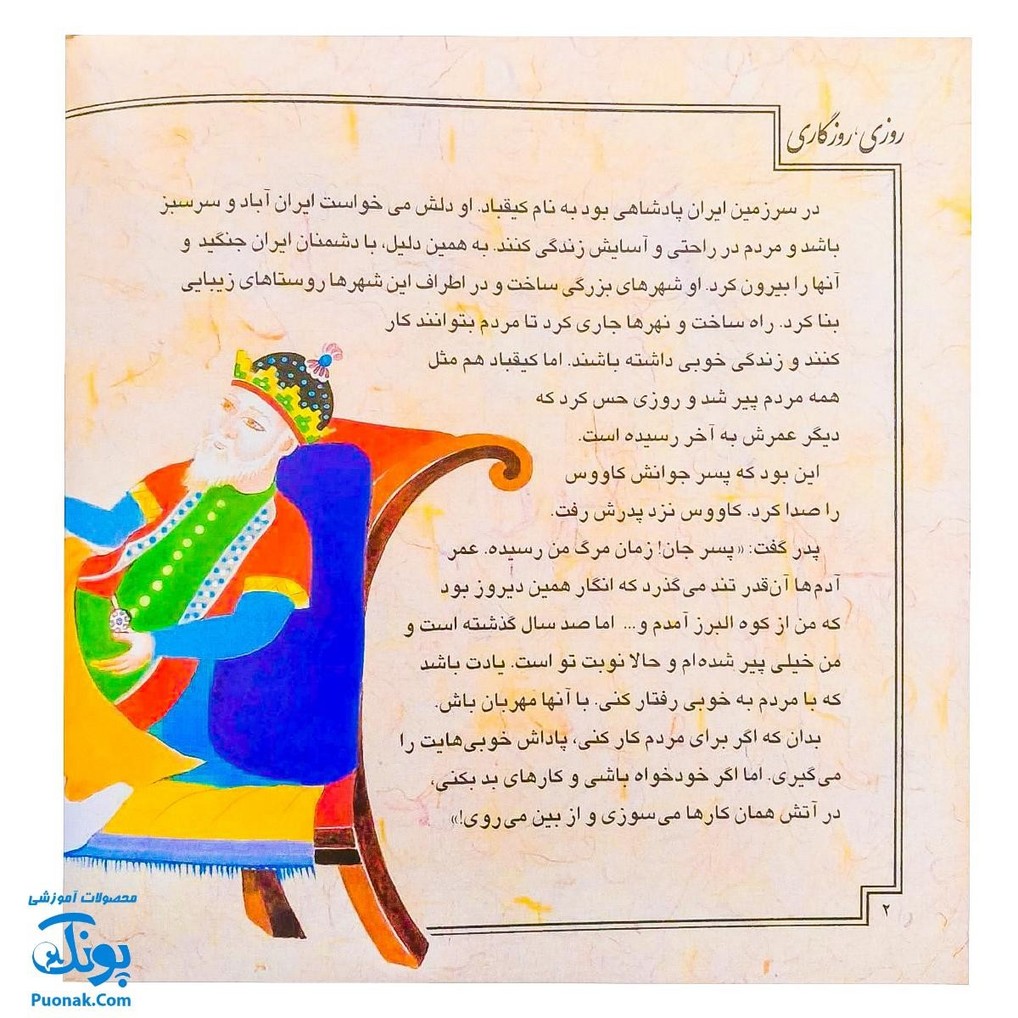 روزی، روزگاری
در سرزمین ایران پادشاهی بود به نام کیقباد. او دلش می خواست ایران آباد و سرسبز
باشد و مردم در راحتی و آسایش زندگی کنند. به همین دلیل، با دشمنان ایران جنگید و
آنها را بیرون کرد. او شهرهای بزرگی ساخت و در اطراف این شهرها روستاهای زیبایی
بنا کرد. راه ساخت و نهرها جاری کرد تا مردم بتوانند کار
کنند و زندگی خوبی داشته باشند. اما کیقباد هم مثل
همه مردم پیر شد و روزی حس کرد که
دیگر عمرش به آخر رسیده است.
این بود که پسر جوانش کاووس
را صدا کرد. کاووس نزد پدرش رفت.
پدر گفت: «پسر جان! زمان مرگ من رسیده. عمر
آدم‌ها آن‌قدر تند می‌گذرد که انگار همین دیروز بود
که من از کوه البرز آمدم و... اما صد سال گذشته است و
من خیلی پیر شده‌ام و حالا نوبت تو است. یادت باشد
که با مردم به خوبی رفتار کنی. با آنها مهربان باش.
بدان که اگر برای مردم کار کنی، پاداش خوبی‌هایت را
می‌گیری. اما اگر خودخواه باشی و کارهای بد بکنی،
در آتش همان کارها می‌سوزی و از بین می‌روی!»
۲
محصولات آموزشی
پونک
Puonak.Com